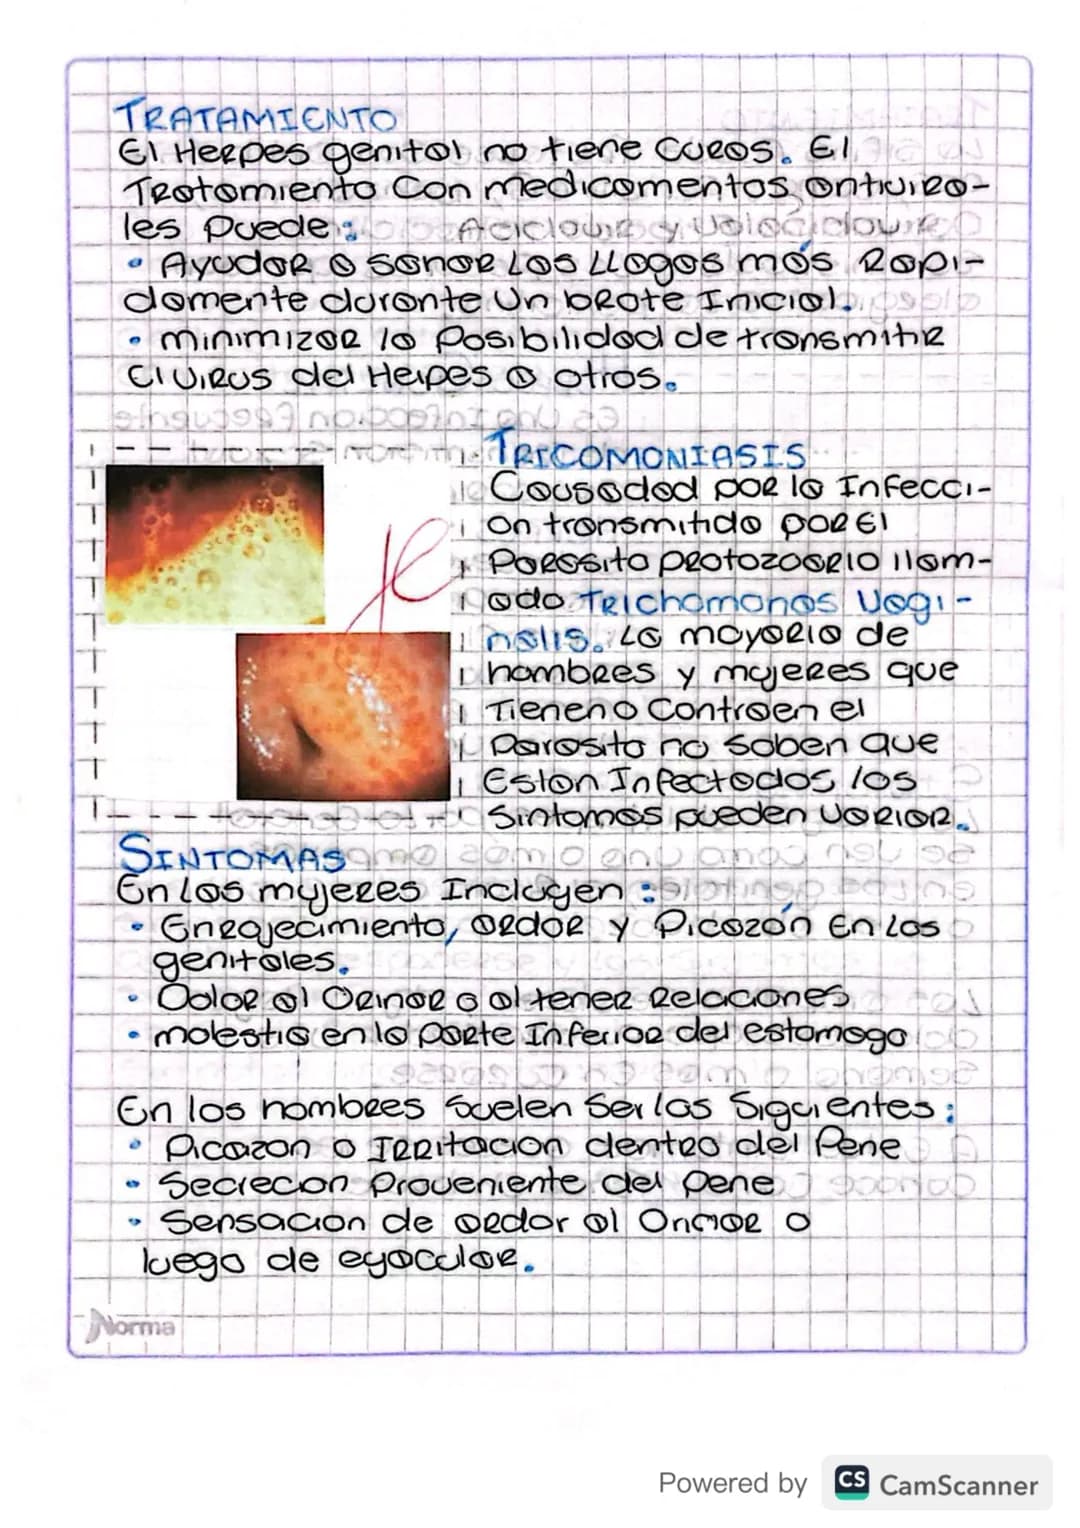 TRATAMIENTO
El Herpes genital no tiene curas. El
Tratamiento con medicamentos antivira-
les puede:
• Ayudar a sanar las llagas más Rapi-
damente durante un brote Inicial.
• minimizar la posibilidad de transmitir
el virus del Herpes a otros.
TRICOMONIASIS
Causadad por la Infecci-
on transmitida por El
Parasito protozoario llam-
ado Trichomonas Vagi-
nalis. La mayoria de
hombres y mujeres que
Tienen o Contraen el
Parasito no saben que
Estan Infectados los
Sintomas pueden variar.
SINTOMAS
En las mujeres Incluyen:
• Enrojecimiento, ardor y Picazón En las
genitales.
• Dolor al Orinar o al tener Relaciones
• molestia en la parte Inferior del estomago
En los hombres suelen Ser las Siguientes:
• Picazon o IRRitacion dentro del Pene
• Secrecion Proveniente del pene
• Sensacion de ardor al Orinar o
luego de eyacular.
Norma
Powered by CS CamScanner